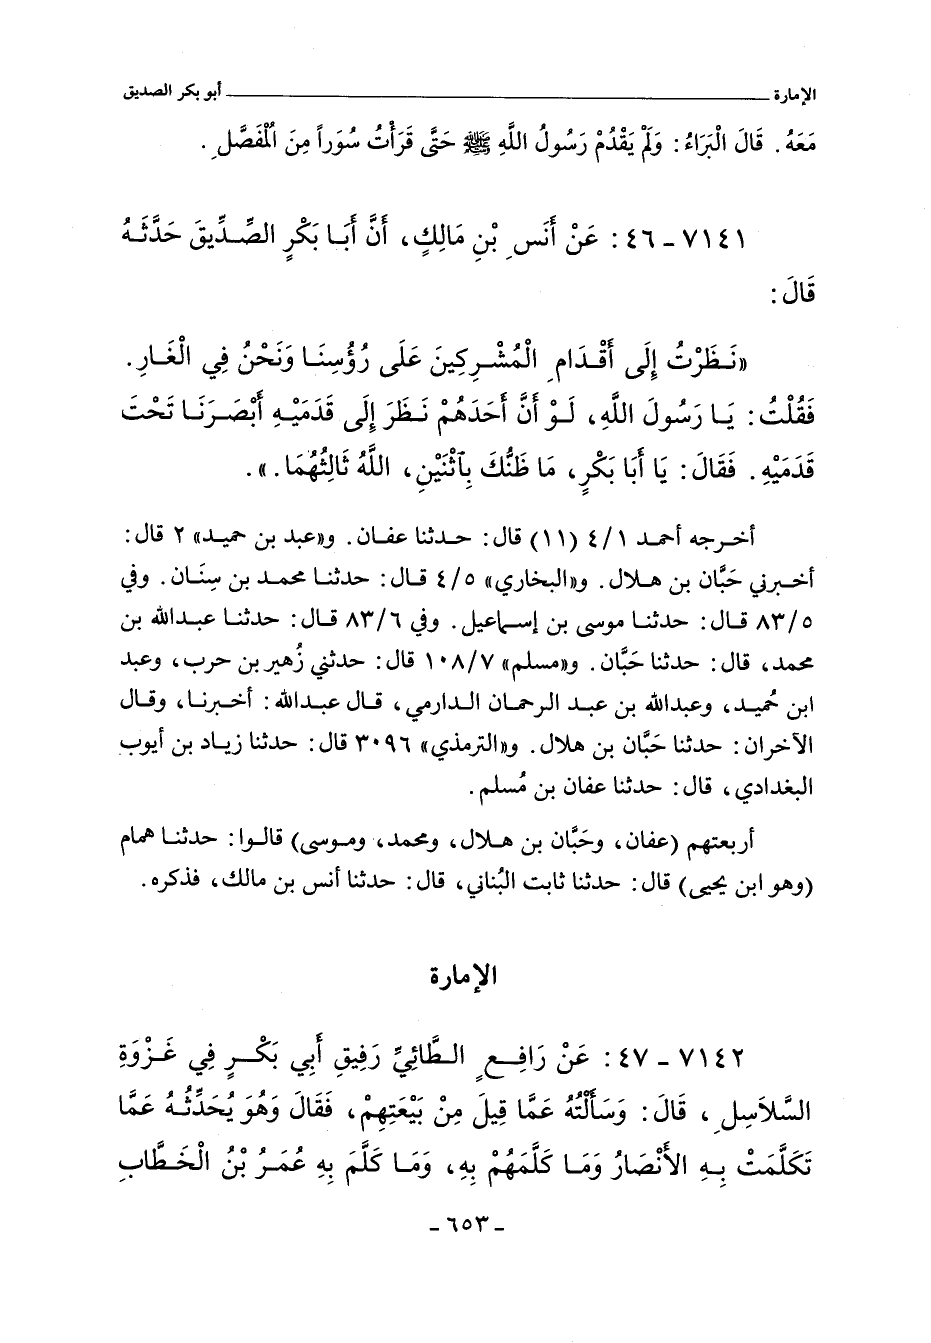 الإمارة ـــــــــــــــــــــــــــــــــــــــــــــــــــــ أبو بكر الصديق
مَعَهُ . قَالَ الْبَرَاءُ : وَلَمْ يَقْدُمْ رَسُولُ اللَّهِ ﷺ حَتَّى قَرَأْتُ سُوَراً مِنَ الْمُفَصَّلِ .
٧١٤١ ـ ٤٦ : عَنْ أَنَسِ بْنِ مَالِكٍ ، أَنَّ أَبَا بَكْرٍ الصِّدِّيقَ حَدَّثَهُ
قَالَ :
«نَظَرْتُ إِلَى أَقْدَامِ الْمُشْرِكِينَ عَلَى رُؤُسِنَا وَنَحْنُ فِي الْغَارِ .
فَقُلْتُ : يَا رَسُولَ اللَّهِ ، لَوْ أَنَّ أَحَدَهُمْ نَظَرَ إِلَى قَدَمَيْهِ أَبْصَرَنَا تَحْتَ
قَدَمَيْهِ . فَقَالَ : يَا أَبَا بَكْرٍ ، مَا ظَنُّكَ بِآثْنَيْنِ ، اللَّهُ ثَالِثُهُمَا . » .
أخرجه أحمد ٤/١ (١١) قال : حدثنا عفان . و«عبد بن حميد» ٢ قال :
أخبرني حَبَّان بن هلال . و«البخاري» ٤/٥ قال : حدثنا محمد بن سِنَان . وفي
٨٣/٥ قال : حدثنا موسى بن إسماعيل . وفي ٨٣/٦ قال : حدثنا عبدالله بن
محمد ، قال : حدثنا حَبَّان . و«مسلم» ١٠٨/٧ قال : حدثني زُهير بن حرب ، وعبد
ابن حُميد ، وعبدالله بن عبد الرحمان الدارمي ، قال عبدالله : أخبرنا ، وقال
الآخران : حدثنا حَبَّان بن هلال . و«الترمذي» ٣٠٩٦ قال : حدثنا زياد بن أيوب
البغدادي ، قال : حدثنا عفان بن مُسلم .
أربعتهم (عفان ، وحَبَّان بن هلال ، ومحمد ، وموسى) قالوا : حدثنا همام
(وهو ابن يحيى) قال : حدثنا ثابت البُناني ، قال : حدثنا أنس بن مالك ، فذكره .
الإمارة
٧١٤٢ ـ ٤٧ : عَنْ رَافِعٍ الطَّائِيِّ رَفِيقِ أَبِي بَكْرٍ فِي غَزْوَةِ
السَّلاَسِلِ ، قَالَ : وَسَأَلْتُهُ عَمَّا قِيلَ مِنْ بَيْعَتِهِمْ ، فَقَالَ وَهُوَ يُحَدِّثُهُ عَمَّا
تَكَلَّمَتْ بِهِ الأَنْصَارُ وَمَا كَلَّمَهُمْ بِهِ ، وَمَا كَلَّمَ بِهِ عُمَرُ بْنُ الْخَطَّابِ
ـ ٦٥٣ ـ